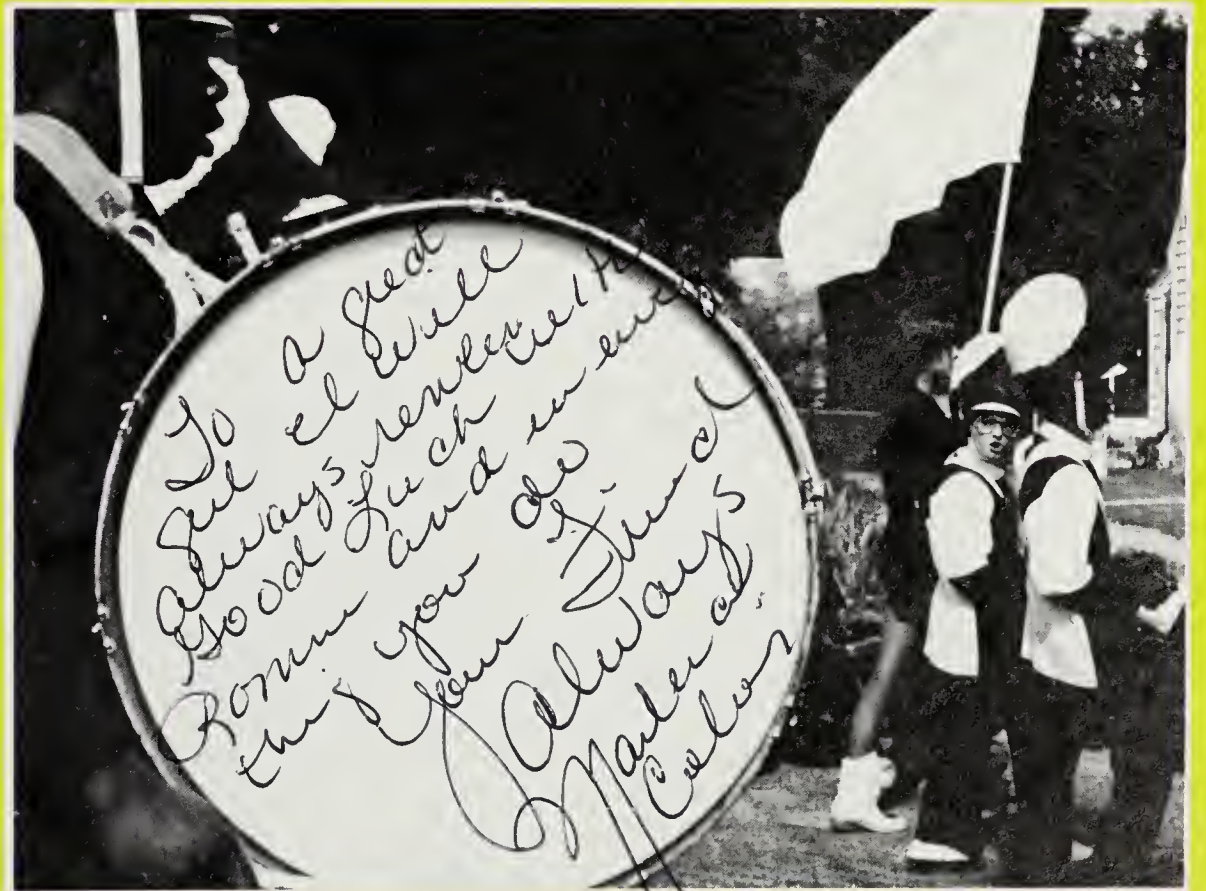 To a great
gal I will
always remember
Good Luck with
Ronnie and in every
thing you do
Your Friend
Always